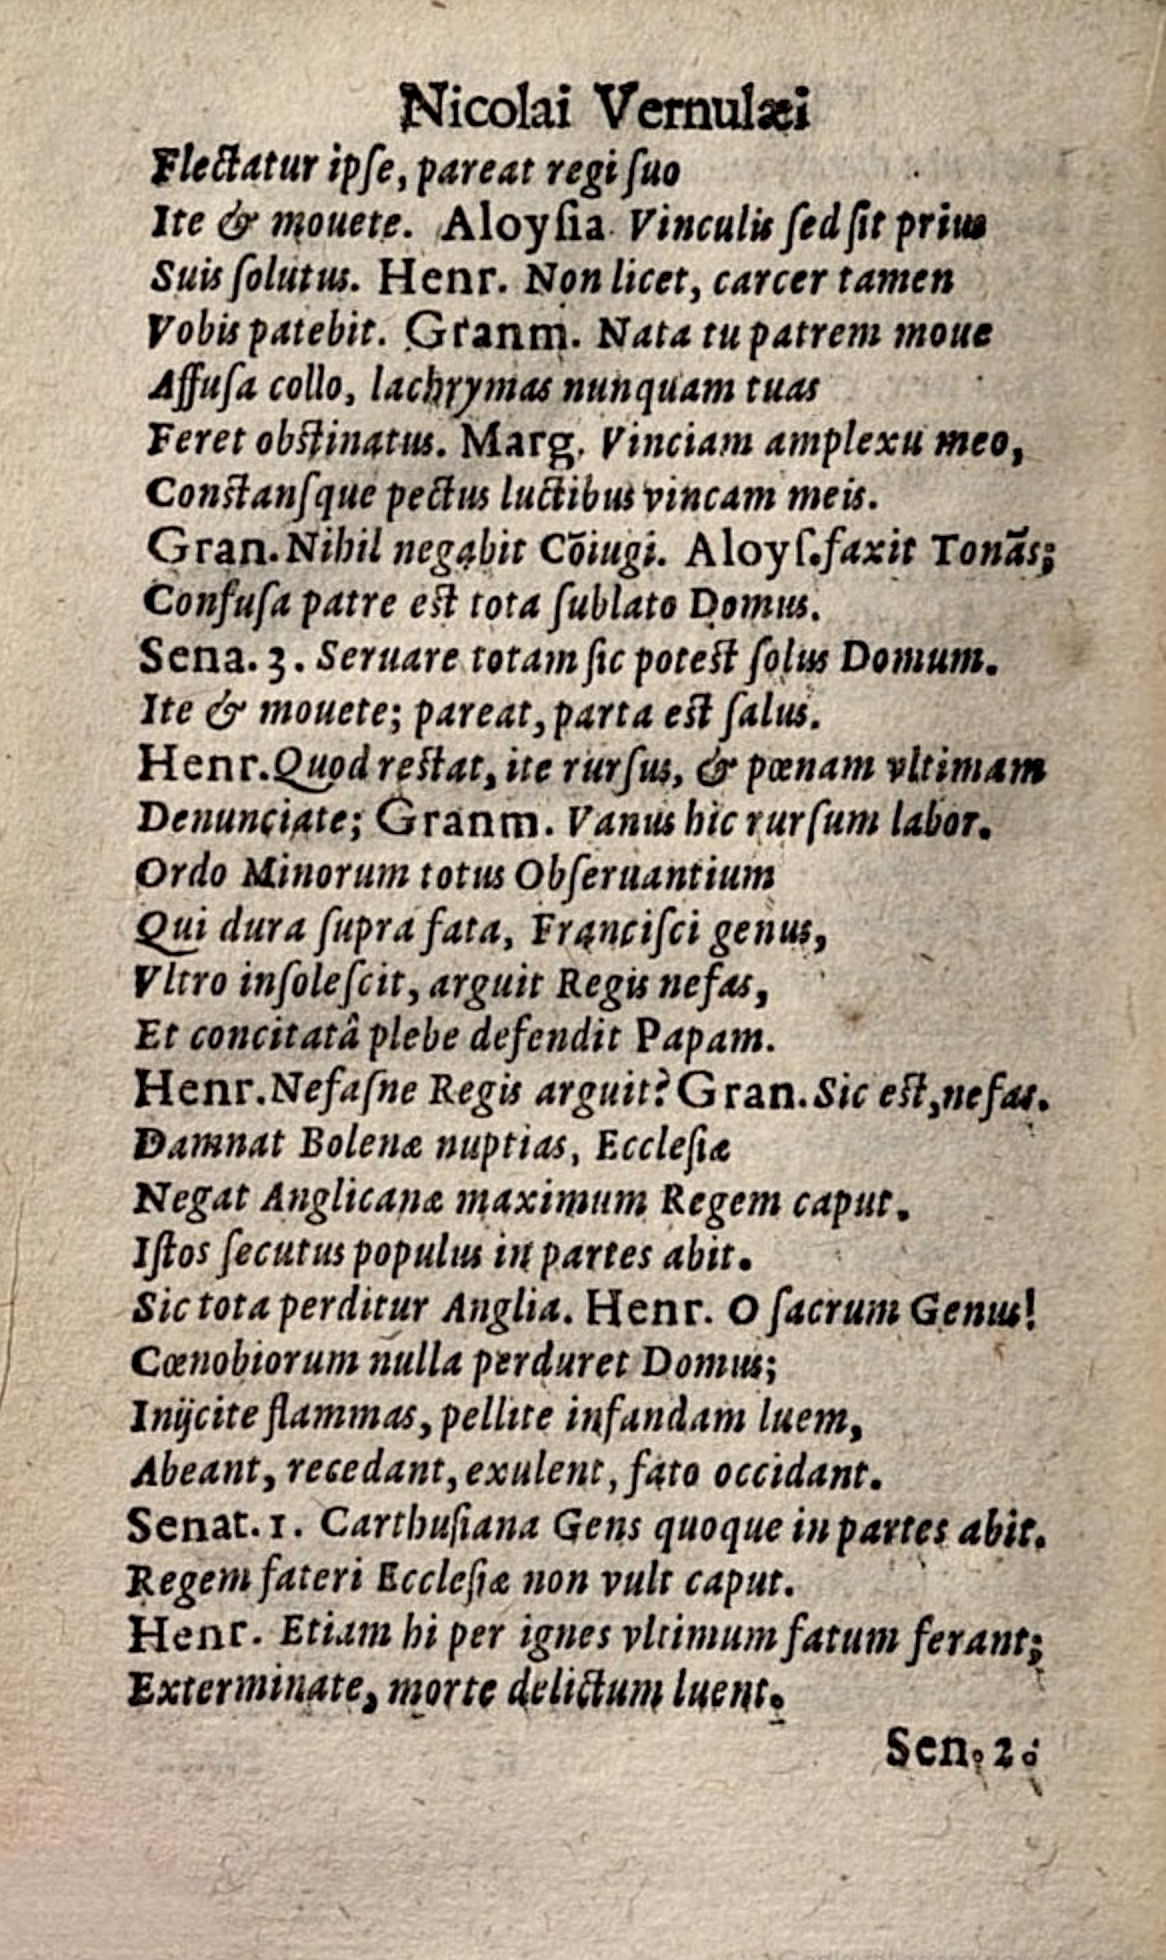 Nicolai Vernulæi
Flectatur ipſe, pareat regi ſuo
Ite & mouete. Aloyſia Vinculis ſed ſit prius
Suis ſolutus. Henr. Non licet, carcer tamen
Vobis patebit. Granm. Nata tu patrem moue
Affuſa collo, lachrymas nunquam tuas
Feret obſtinatus. Marg. Vinciam amplexu meo,
Conſtanſque pectus luctibus vincam meis.
Gran. Nihil negabit Cōiugi. Aloyſ. faxit Tonās;
Confuſa patre eſt tota ſublato Domus.
Sena. 3. Seruare totam ſic poteſt ſolus Domum.
Ite & mouete; pareat, parta eſt ſalus.
Henr. Quod reſtat, ite rurſus, & pœnam vltimam
Denunciate; Granm. Vanus hic rurſum labor.
Ordo Minorum totus Obſeruantium
Qui dura ſupra fata, Franciſci genus,
Vltro inſoleſcit, arguit Regis nefas,
Et concitatâ plebe defendit Papam.
Henr. Nefaſne Regis arguit? Gran. Sic eſt, nefas.
Damnat Bolenæ nuptias, Eccleſiæ
Negat Anglicanæ maximum Regem caput.
Iſtos ſecutus populus in partes abit.
Sic tota perditur Anglia. Henr. O ſacrum Genus!
Cœnobiorum nulla perduret Domus;
Inijcite flammas, pellite infandam luem,
Abeant, recedant, exulent, fato occidant.
Senat. 1. Carthuſiana Gens quoque in partes abit.
Regem fateri Eccleſiæ non vult caput.
Henr. Etiam hi per ignes vltimum fatum ferant;
Exterminate, morte delictum luent.
Sen. 2.